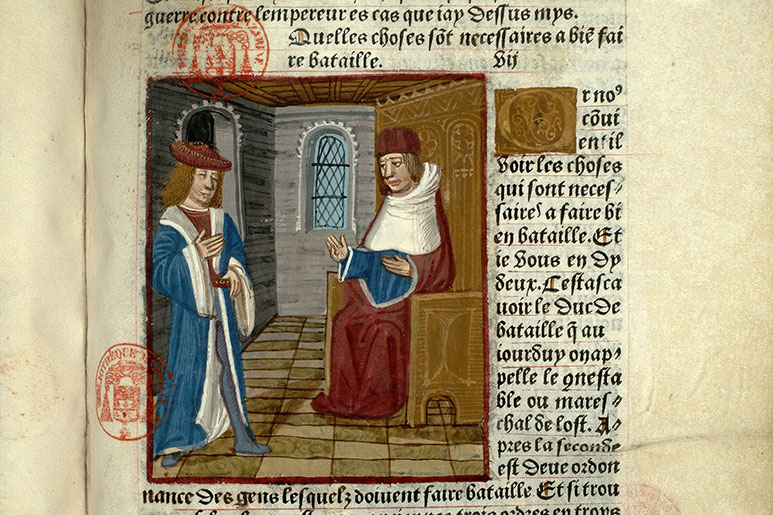 guerre contre lempereur es cas que iay dessus mys.
Quelles choses sõt necessaires a biẽ fai
re bataille. Vij
Or noꝰ
cõui
ent il
voir les choses
qui sont neces⸗
saires a faire bi
en bataille. Et
ie vous en dy
deux. Cestasca
uoir le duc de
bataille q̃ au
iourduy on ap⸗
pelle le gnesta
ble ou mares⸗
chal de lost. A⸗
pres la seconde
est deue ordon
nance des gens lesquelz doiuent faire bataille Et si trou
trois ordres en troys